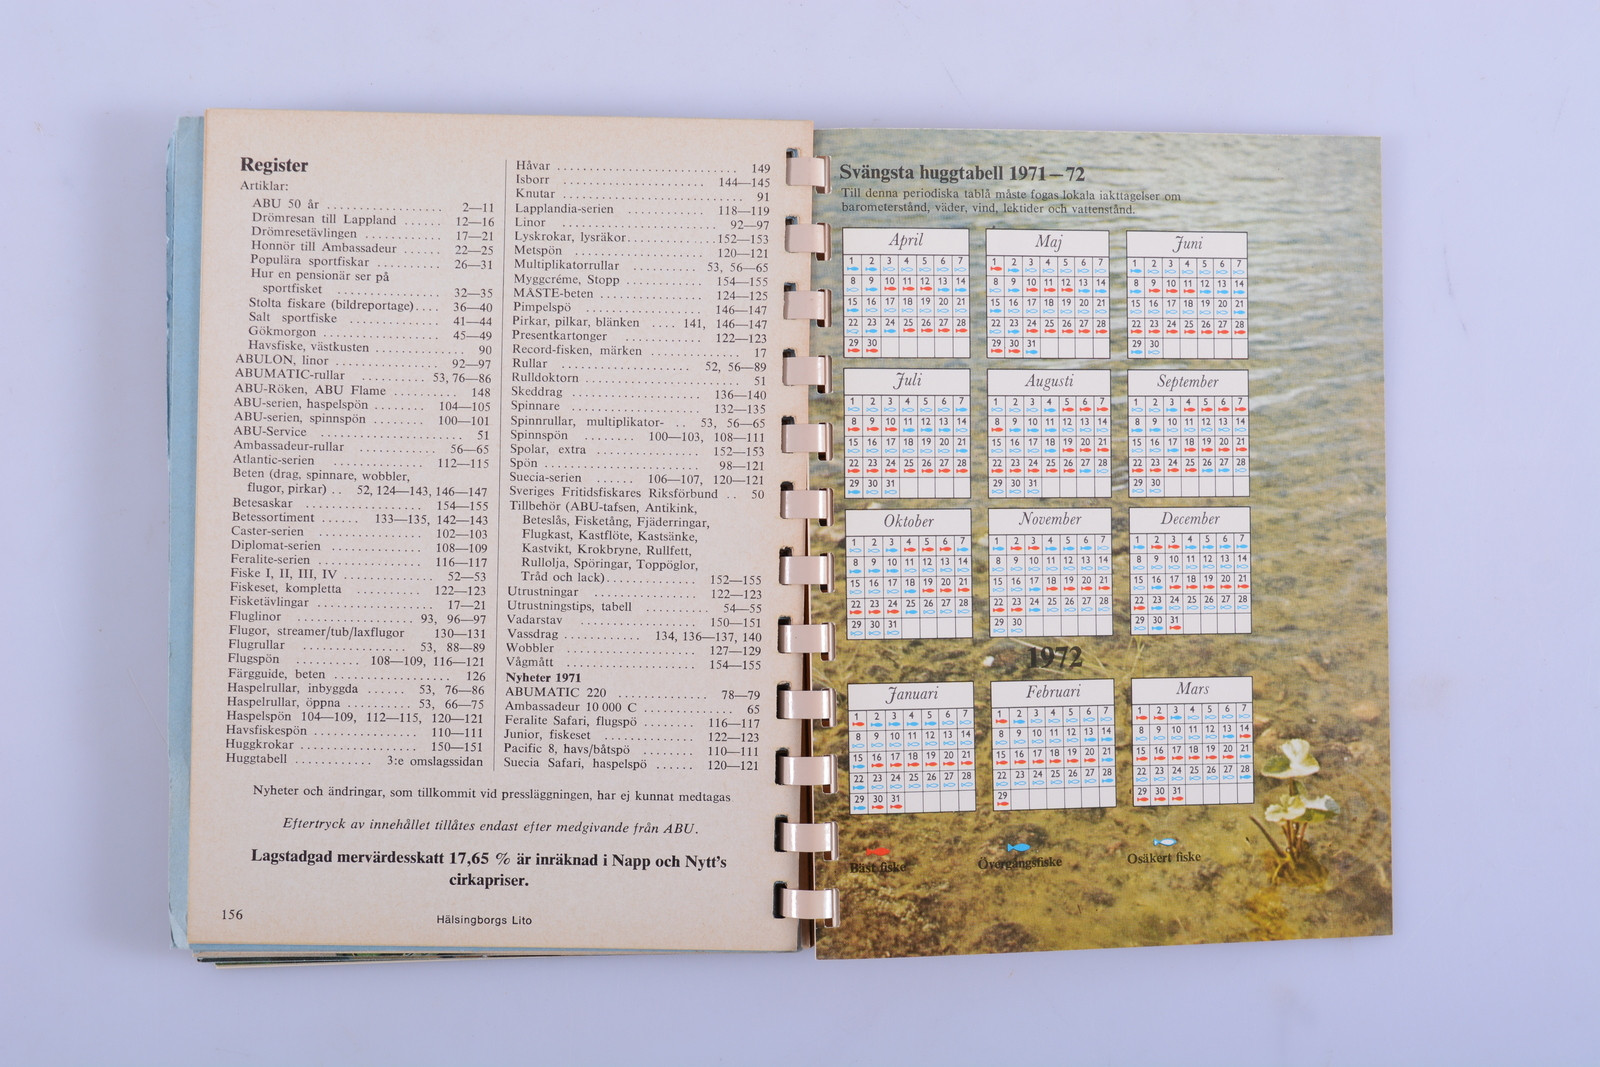 Register
Artiklar:
ABU 50 år .................. 2—11
Drömresan till Lappland ...... 12—16
Drömresetävlingen ............ 17—21
Honnör till Ambassadeur ...... 22—25
Populära sportfiskar .......... 26—31
Hur en pensionär ser på
sportfisket ................ 32—35
Stolta fiskare (bildreportage).... 36—40
Salt sportfiske .............. 41—44
Gökmorgon .................. 45—49
Havsfiske, västkusten .............. 90
ABULON, linor .................. 92—97
ABUMATIC-rullar .......... 53, 76—86
ABU-Röken, ABU Flame .......... 148
ABU-serien, haspelspön ........ 104—105
ABU-serien, spinnspön ........ 100—101
ABU-Service ...................... 51
Ambassadeur-rullar .............. 56—65
Atlantic-serien .............. 112—115
Beten (drag, spinnare, wobbler,
flugor, pirkar) .. 52, 124—143, 146—147
Betesaskar .................. 154—155
Betessortiment ...... 133—135, 142—143
Caster-serien ................ 102—103
Diplomat-serien .............. 108—109
Feralite-serien .............. 116—117
Fiske I, II, III, IV .............. 52—53
Fiskeset, kompletta ............ 122—123
Fisketävlingar .................. 17—21
Fluglinor .................. 93, 96—97
Flugor, streamer/tub/laxflugor 130—131
Flugrullar .................. 53, 88—89
Flugspön .......... 108—109, 116—121
Färgguide, beten .................. 126
Haspelrullar, inbyggda ...... 53, 76—86
Haspelrullar, öppna .......... 53, 66—75
Haspelspön 104—109, 112—115, 120—121
Havsfiskespön ................ 110—111
Huggkrokar .................. 150—151
Huggtabell ............ 3:e omslagssidan
Håvar .......................... 149
Isborr .................... 144—145
Knutar .......................... 91
Lapplandia-serien ............ 118—119
Linor ........................ 92—97
Lyskrokar, lysräkor.............. 152—153
Metspön .................... 120—121
Multiplikatorrullar ........ 53, 56—65
Myggcréme, Stopp ............ 154—155
MÄSTE-beten ................ 124—125
Pimpelspö .................. 146—147
Pirkar, pilkar, blänken .... 141, 146—147
Presentkartonger .............. 122—123
Record-fisken, märken ............ 17
Rullar .................... 52, 56—89
Rulldoktorn ...................... 51
Skeddrag .................... 136—140
Spinnare .................... 132—135
Spinnrullar, multiplikator- .. 53, 56—65
Spinnspön ........ 100—103, 108—111
Spolar, extra ................ 152—153
Spön ........................ 98—121
Suecia-serien ...... 106—107, 120—121
Sveriges Fritidsfiskares Riksförbund .. 50
Tillbehör (ABU-tafsen, Antikink,
Beteslås, Fisketång, Fjäderringar,
Flugkast, Kastflöte, Kastsänke,
Kastvikt, Krokbryne, Rullfett,
Rullolja, Spöringar, Toppöglor,
Tråd och lack).............. 152—155
Utrustningar ................ 122—123
Utrustningstips, tabell .......... 54—55
Vadarstav .................... 150—151
Vassdrag .......... 134, 136—137, 140
Wobbler .................... 127—129
Vågmått .................... 154—155
Nyheter 1971
ABUMATIC 220 .............. 78—79
Ambassadeur 10 000 C .............. 65
Feralite Safari, flugspö ........ 116—117
Junior, fiskeset .............. 122—123
Pacific 8, havs/båtspö ........ 110—111
Suecia Safari, haspelspö ...... 120—121
Nyheter och ändringar, som tillkommit vid pressläggningen, har ej kunnat medtagas
Eftertryck av innehållet tillåtes endast efter medgivande från ABU.
Lagstadgad mervärdesskatt 17,65 % är inräknad i Napp och Nytt's
cirkapriser.
156
Hälsingborgs Lito
Svängsta huggtabell 1971—72
Till denna periodiska tablå måste fogas lokala iakttagelser om
barometerstånd, väder, vind, lektider och vattenstånd.
April
1 2 3 4 5 6 7
8 9 10 11 12 13 14
15 16 17 18 19 20 21
22 23 24 25 26 27 28
29 30
Maj
1 2 3 4 5 6 7
8 9 10 11 12 13 14
15 16 17 18 19 20 21
22 23 24 25 26 27 28
29 30 31
Juni
1 2 3 4 5 6 7
8 9 10 11 12 13 14
15 16 17 18 19 20 21
22 23 24 25 26 27 28
29 30
Juli
1 2 3 4 5 6 7
8 9 10 11 12 13 14
15 16 17 18 19 20 21
22 23 24 25 26 27 28
29 30 31
Augusti
1 2 3 4 5 6 7
8 9 10 11 12 13 14
15 16 17 18 19 20 21
22 23 24 25 26 27 28
29 30 31
September
1 2 3 4 5 6 7
8 9 10 11 12 13 14
15 16 17 18 19 20 21
22 23 24 25 26 27 28
29 30
Oktober
1 2 3 4 5 6 7
8 9 10 11 12 13 14
15 16 17 18 19 20 21
22 23 24 25 26 27 28
29 30 31
November
1 2 3 4 5 6 7
8 9 10 11 12 13 14
15 16 17 18 19 20 21
22 23 24 25 26 27 28
29 30
December
1 2 3 4 5 6 7
8 9 10 11 12 13 14
15 16 17 18 19 20 21
22 23 24 25 26 27 28
29 30 31
1972
Januari
1 2 3 4 5 6 7
8 9 10 11 12 13 14
15 16 17 18 19 20 21
22 23 24 25 26 27 28
29 30 31
Februari
1 2 3 4 5 6 7
8 9 10 11 12 13 14
15 16 17 18 19 20 21
22 23 24 25 26 27 28
29
Mars
1 2 3 4 5 6 7
8 9 10 11 12 13 14
15 16 17 18 19 20 21
22 23 24 25 26 27 28
29 30 31
Bäst fiske
Övergångsfiske
Osäkert fiske